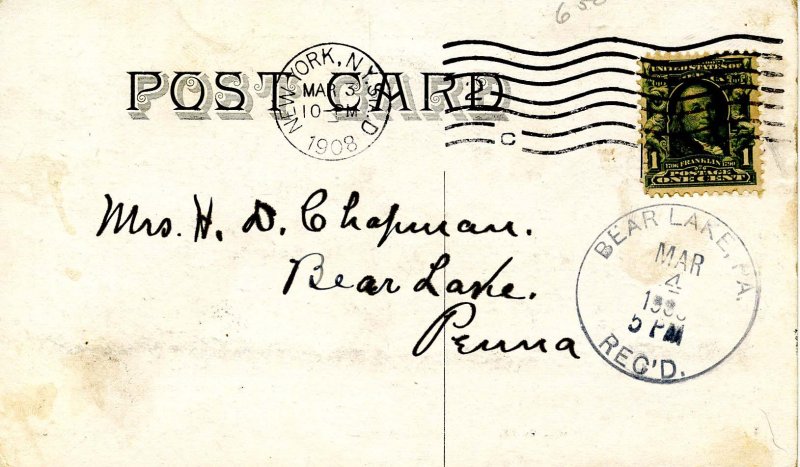 650
POST CARD
NEW YORK, N.Y. STA. D
MAR 3
10-PM
1908
C
UNITED STATES OF
1 FRANKLIN 1
POSTAGE
ONE CENT
Mrs. H. D. Chapman.
Bear Lake.
Penna
BEAR LAKE, PA.
MAR
4
5 PM
REC'D.